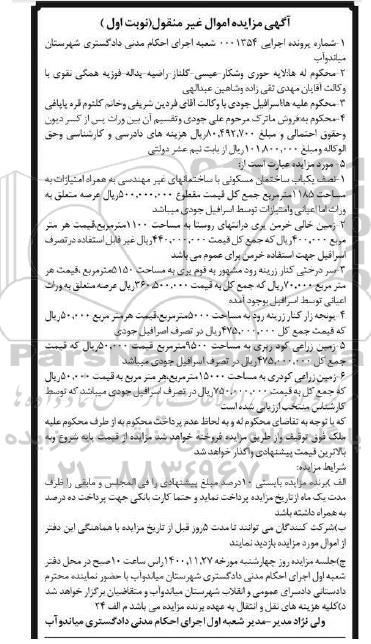 آگهی مزایده اموال غیر منقول(نوبت اول )
۱-شماره پرونده اجرایی ۰۰۰۱۳۵۴ شعبه اجرای احکام مدنی دادگستری شهرستان
میاندوآب
۲-محکوم له ها:لایه حوری وشکار-عیسی-گلناز-راضیه-یداله-فوزیه همگی نقوی با
وکالت آقایان مهدی تقی زاده وشاهین عبدالهی
۳-محکوم علیه ها:اسرافیل جودی با وکالت آقای فردین شریفی وخانم کلثوم قره پاپاقی
۴-محکوم به:فروش ماترک مرحوم علی جودی وتقسیم آن بین وراث پس از کسر دیون
وحقوق احتمالی و مبلغ ۸۰,۴۹۲,۷۰۰ریال هزینه های دادرسی و کارشناسی وحق
الوکاله ومبلغ ۱۰۱,۸۰۰,۰۰۰ریال از بابت نیم عشر دولتی
۵- مورد مزایده عبارت است از:
۱-نصف یکباب ساختمان مسکونی با ساختمانهای غیر مهندسی به همراه امتیازات به
مساحت ۱۱۸۵مترمربع جمع کل قیمت مقطوع ۵۰۰,۰۰۰,۰۰۰ریال عرصه متعلق به
وراث اما اعیانی وامتیازات توسط اسرافیل جودی میباشد
۲-زمین خالی خرمن یری درانتهای روستا به مساحت ۱۱۰۰مترمربع،قیمت هر متر
مربع ۴۰۰,۰۰۰ریال که جمع کل قیمت ۴۴۰,۰۰۰,۰۰۰ریال غیر قابل استفاده در تصرف
اسرافیل جهت استفاده خرمن برای عموم می باشد
۳-سر درختی کنار زرینه رود مشهور به قوم یری به مساحت ۵۱۵۰مترمربع ،قیمت هر
متر مربع ۷۰,۰۰۰ریال که جمع کل به قیمت ۳۶۰,۵۰۰,۰۰۰ریال عرصه متعلق به وراث
اعیانی توسط اسرافیل بوجود آمده
۴- یونجه زار کنار زرینه رود به مساحت ۵۰۰۰مترمربع،قیمت هر متر مربع ۵۰,۰۰۰ریال
که قیمت جمع کل ۴۷۵,۰۰۰,۰۰۰ریال در تصرف اسرافیل جودی
۵-زمین زراعی کود ریزی به مساحت ۹۵۰۰مترمربع قیمت ۵۰,۰۰۰ریال که قیمت
جمع کل ۴۷۵,۰۰۰,۰۰۰ریال در تصرف اسرافیل جودی میباشد
۶-زمین زراعی کودری به مساحت ۱۵۰۰۰مترمربع،هر متر مربع به قیمت ۵۰,۰۰۰ریال
که جمع کل به قیمت ۷۵۰,۰۰۰,۰۰۰ریال در تصرف اسرافیل جودی میباشد که توسط
کارشناس منتخب ارزیابی شده است
که با توجه به تقاضای محکوم له و به لحاظ عدم پرداخت محکوم به از طرف محکوم علیه
ملک فوق توقیف واز طریق مزایده فروخته خواهد شد مزایده از قیمت پایه شروع وبه
بالاترین قیمت پیشنهادی واگذار خواهد شد
شرایط مزایده:
الف )برنده مزایده بایستی ۱۰درصد مبلغ پیشنهادی را فی المجلس و مابقی را ظرف
مدت یک ماه ازتاریخ مزایده پرداخت نماید و حتما کارت بانکی جهت پرداخت ده درصد
به همراه داشته باشد
ب)شرکت کنندگان می توانند تا مدت ۵روز قبل از تاریخ مزایده با هماهنگی این دفتر
از اموال مورد مزایده بازدید نمایند
ج)جلسه مزایده روز چهارشنبه مورخه ۱۴۰۰,۱۱,۲۷راس ساعت ۱۰صبح در محل دفتر
شعبه اول اجرای احکام مدنی دادگستری شهرستان میاندوآب با حضور نماینده محترم
دادستانی دادسرای عمومی و انقلاب شهرستان میاندوآب و متقاضیان برگزار خواهد شد
د)کلیه هزینه های نقل و انتقال به عهده برنده مزایده می باشد م الف ۲۴
ولی نژاد مدیر -مدیر شعبه اول اجرای احکام مدنی دادگستری میاندوآب